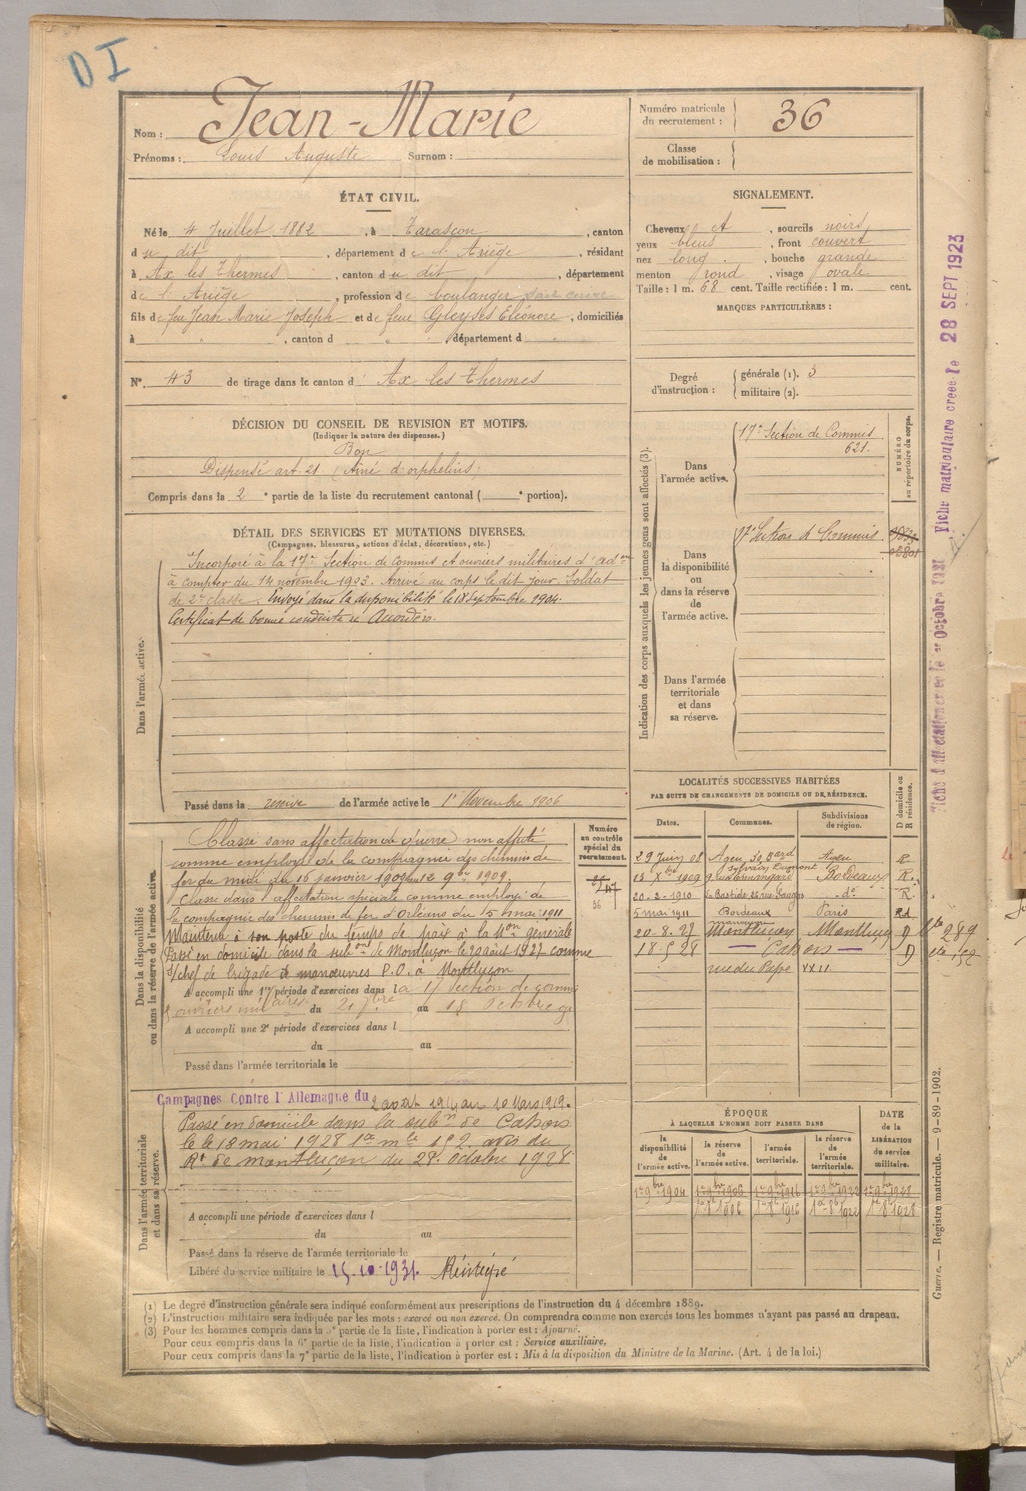 D I
Nom : Jean-Marie
Prénoms : Louis Auguste Surnom :
Numéro matricule du recrutement : 36
Classe de mobilisation :
ÉTAT CIVIL.
Né le 4 Juillet 1882, à Tarascon, canton
d u dit, département de l'Ariège, résidant
à Ax les Thermes, canton du dit, département
de l'Ariège, profession de boulanger
fils de feu Jean Marie Joseph et de feue Gleyses Eléonore, domiciliés
à , canton d département d
N°. 43 de tirage dans le canton d Ax les Thermes
SIGNALEMENT.
Cheveux et, sourcils noirs
yeux bleus, front couvert
nez long, bouche grande
menton rond, visage ovale
Taille : 1 m. 68 cent. Taille rectifiée : 1 m. cent.
MARQUES PARTICULIÈRES :
Degré d'instruction : générale (1). 3
militaire (2).
DÉCISION DU CONSEIL DE REVISION ET MOTIFS.
(Indiquer la nature des dispenses.)
Bon
Dispensé art. 21 (Ainé d'orphelins)
Compris dans la 2e partie de la liste du recrutement cantonal ( e portion).
DÉTAIL DES SERVICES ET MUTATIONS DIVERSES.
(Campagnes, blessures, actions d'éclat, décorations, etc.)
Dans l'armée active.
Incorporé à la 17e Section de Commis et ouvriers militaires d'adon
à compter du 14 novembre 1903. Arrivé au corps le dit jour. Soldat
de 2e classe. Envoyé dans la disponibilité le 18 Septembre 1904.
Certificat de bonne conduite « Accordé ».
Passé dans la réserve de l'armée active le 1er Novembre 1906
Indication des corps auxquels les jeunes gens sont affectés (3).
NUMÉRO au répertoire du corps.
Dans l'armée active.
17e Section de Commis
621.
Dans la disponibilité ou dans la réserve de l'armée active.
17e Section d Commis
Dans l'armée territoriale et dans sa réserve.
Dans la disponibilité ou dans la réserve de l'armée active.
Numéro au contrôle spécial du recrutement.
Classé sans affectation de guerre non affecté
comme employé de la compagnie des chemins de
fer du midi du 16 janvier 1909 au 12 9bre 1909.
Classé dans l'affectation spéciale comme employé de
la compagnie des chemins de fer d'Orléans du 5 mai 1911
Maintenu à son poste du temps de paix à la Mon générale
Passé en domicile dans la subon de Montluçon le 20 août 1927 comme
s/chef de brigade de manœuvres P.O. à Montluçon
A accompli une 1re période d'exercices dans la 17 Section de commis
ouvriers militaires du 21 7bre au 18 Octobre
A accompli une 2e période d'exercices dans l
du au
Passé dans l'armée territoriale le
LOCALITÉS SUCCESSIVES HABITÉES
PAR SUITE DE CHANGEMENTS DE DOMICILE OU DE RÉSIDENCE.
Dates. Communes. Subdivisions de région. D domicile ou R résidence.
29 Juin 08 Agen, 30 Bard Sylvain Dumont Agen R
15 Xbre 1909 Bordeaux R.
20-2-1910 La Bastide, 26 rue do R.
5 mai 1911 Bordeaux Paris Rd
20.8.27 Montluçon Montluçon D
18 5 28 Cahors D
rue du Pape XXII
Dans l'armée territoriale et dans sa réserve.
Campagnes Contre l'Allemagne du 2 août 1914 au 10 Mars 1919.
Passé en domicile dans la subon de Cahors
le 18 mai 1928 avis du
Rt de Montluçon du 28 Octobre 1928
A accompli une période d'exercices dans l
du au
Passé dans la réserve de l'armée territoriale le
Libéré du service militaire le 15.10.1931.
ÉPOQUE
À LAQUELLE L'HOMME DOIT PASSER DANS
la disponibilité de l'armée active. la réserve de l'armée active. l'armée territoriale. la réserve de l'armée territoriale. DATE de la LIBÉRATION du service militaire.
1er 9bre 1904 1er 9bre 1906 1er 9bre 1916 1er 9bre 1922 1er 9bre 1928
(1) Le degré d'instruction générale sera indiqué conformément aux prescriptions de l'instruction du 4 décembre 1889.
(2) L'instruction militaire sera indiquée par les mots : exercé ou non exercé. On comprendra comme non exercés tous les hommes n'ayant pas passé au drapeau.
(3) Pour les hommes compris dans la 5e partie de la liste, l'indication à porter est : Ajourné.
Pour ceux compris dans la 6e partie de la liste, l'indication à porter est : Service auxiliaire.
Pour ceux compris dans la 7e partie de la liste, l'indication à porter est : Mis à la disposition du Ministre de la Marine. (Art. 4 de la loi.)
Fiche matriculaire créée le 28 SEPT 1923
Guerre. — Registre matricule. — 9-89-1902.